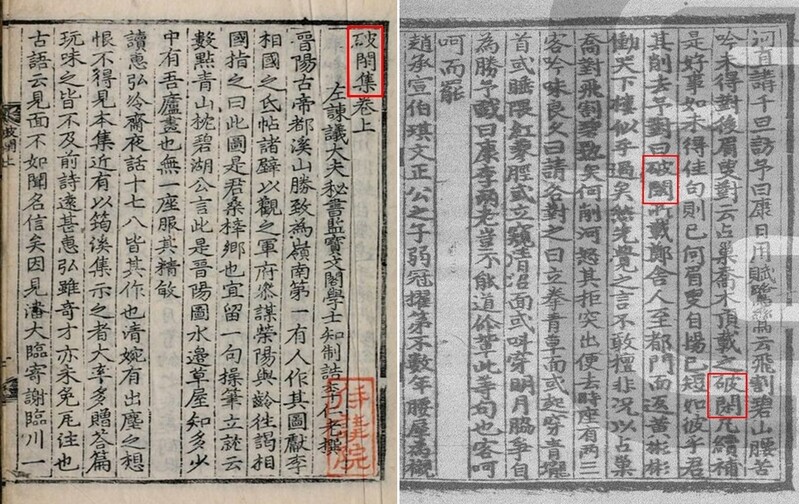 破閑集卷上
左諫議大夫秘書監寶文閣學士知制誥李仁老撰
晉陽古帝都溪山勝致為嶺南第一有人作其圖獻李
相國之氐帖諸壁以觀之軍府叅謀榮陽與齡往謁相
國指之曰此圖是君桑梓鄉也宜留一句操筆立就云
數點青山枕碧湖公言此是晉陽圖水邊草屋知多少
中有吾廬畫也無一座服其精敏
讀惠弘冷齋夜話十七八皆其作也清婉有出塵之想
恨不得見本集近有以筠溪集示之者大率多贈荅篇
玩味之皆不及前詩遠甚惠弘雖奇才亦未免瓦注也
古語云見面不如聞名信矣因見潘大臨寄謝臨川一
河直講千旦訪予曰康日用賦鷺鷥云飛割碧山腰苦
吟未得對後眉叟對云占巢喬木頂載之破閑凡續補
是好事如未得佳句則已何眉叟自揚已短如彼乎君
其削去予對曰破閑所載鄭舍人至都門面苦彬彬
慟哭下樓似乎過矣然先覺之言不敢擅非況以占巢
喬對飛割碧矣何削河怒其拒突出便去時座有兩三
客吟味良久曰請各對之曰立拳青草面或起穿青靄
首或睡隈紅蓼脛或立窺清沼面或叫穿明月腸爭自
為勝予戲曰康李兩老豈不能道你輩此等句也客呵
呵而罷
趙承宣伯琪文正公之子弱冠擢第不數年腰犀為觀